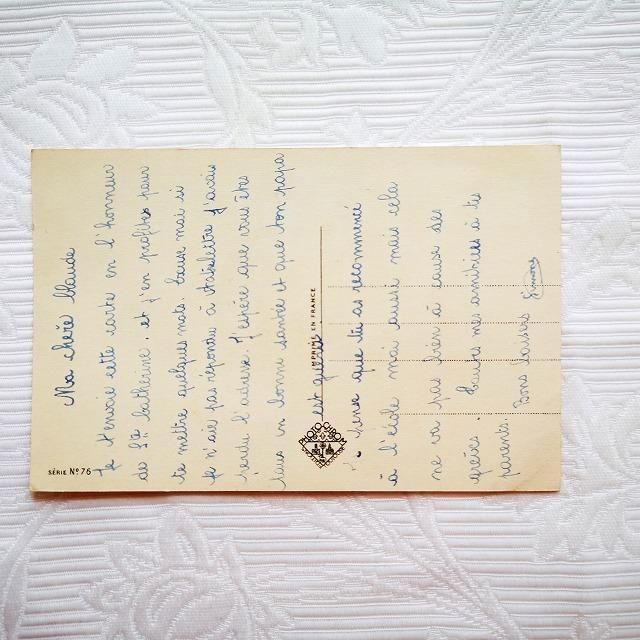 Ma chère Claude
Je t'envoie cette carte en l'honneur
de Ste Catherine. et j'en profites pour
te mettre quelques mots. Excuse moi si
je n'ais pas répondu à votre lettre j'avais
perdu l'adresse. J'espère que vous êtes
tous en bonne santé et que ton papa
est guérit
pense que tu as recommencé
à l'école moi aussi mais cela
ne va pas bien à cause des
grèves. Toutes mes amitiés à tes
parents. Bons baisers Simone
SÉRIE No 76
IMPRIMÉ EN FRANCE
PHOTOCHROM